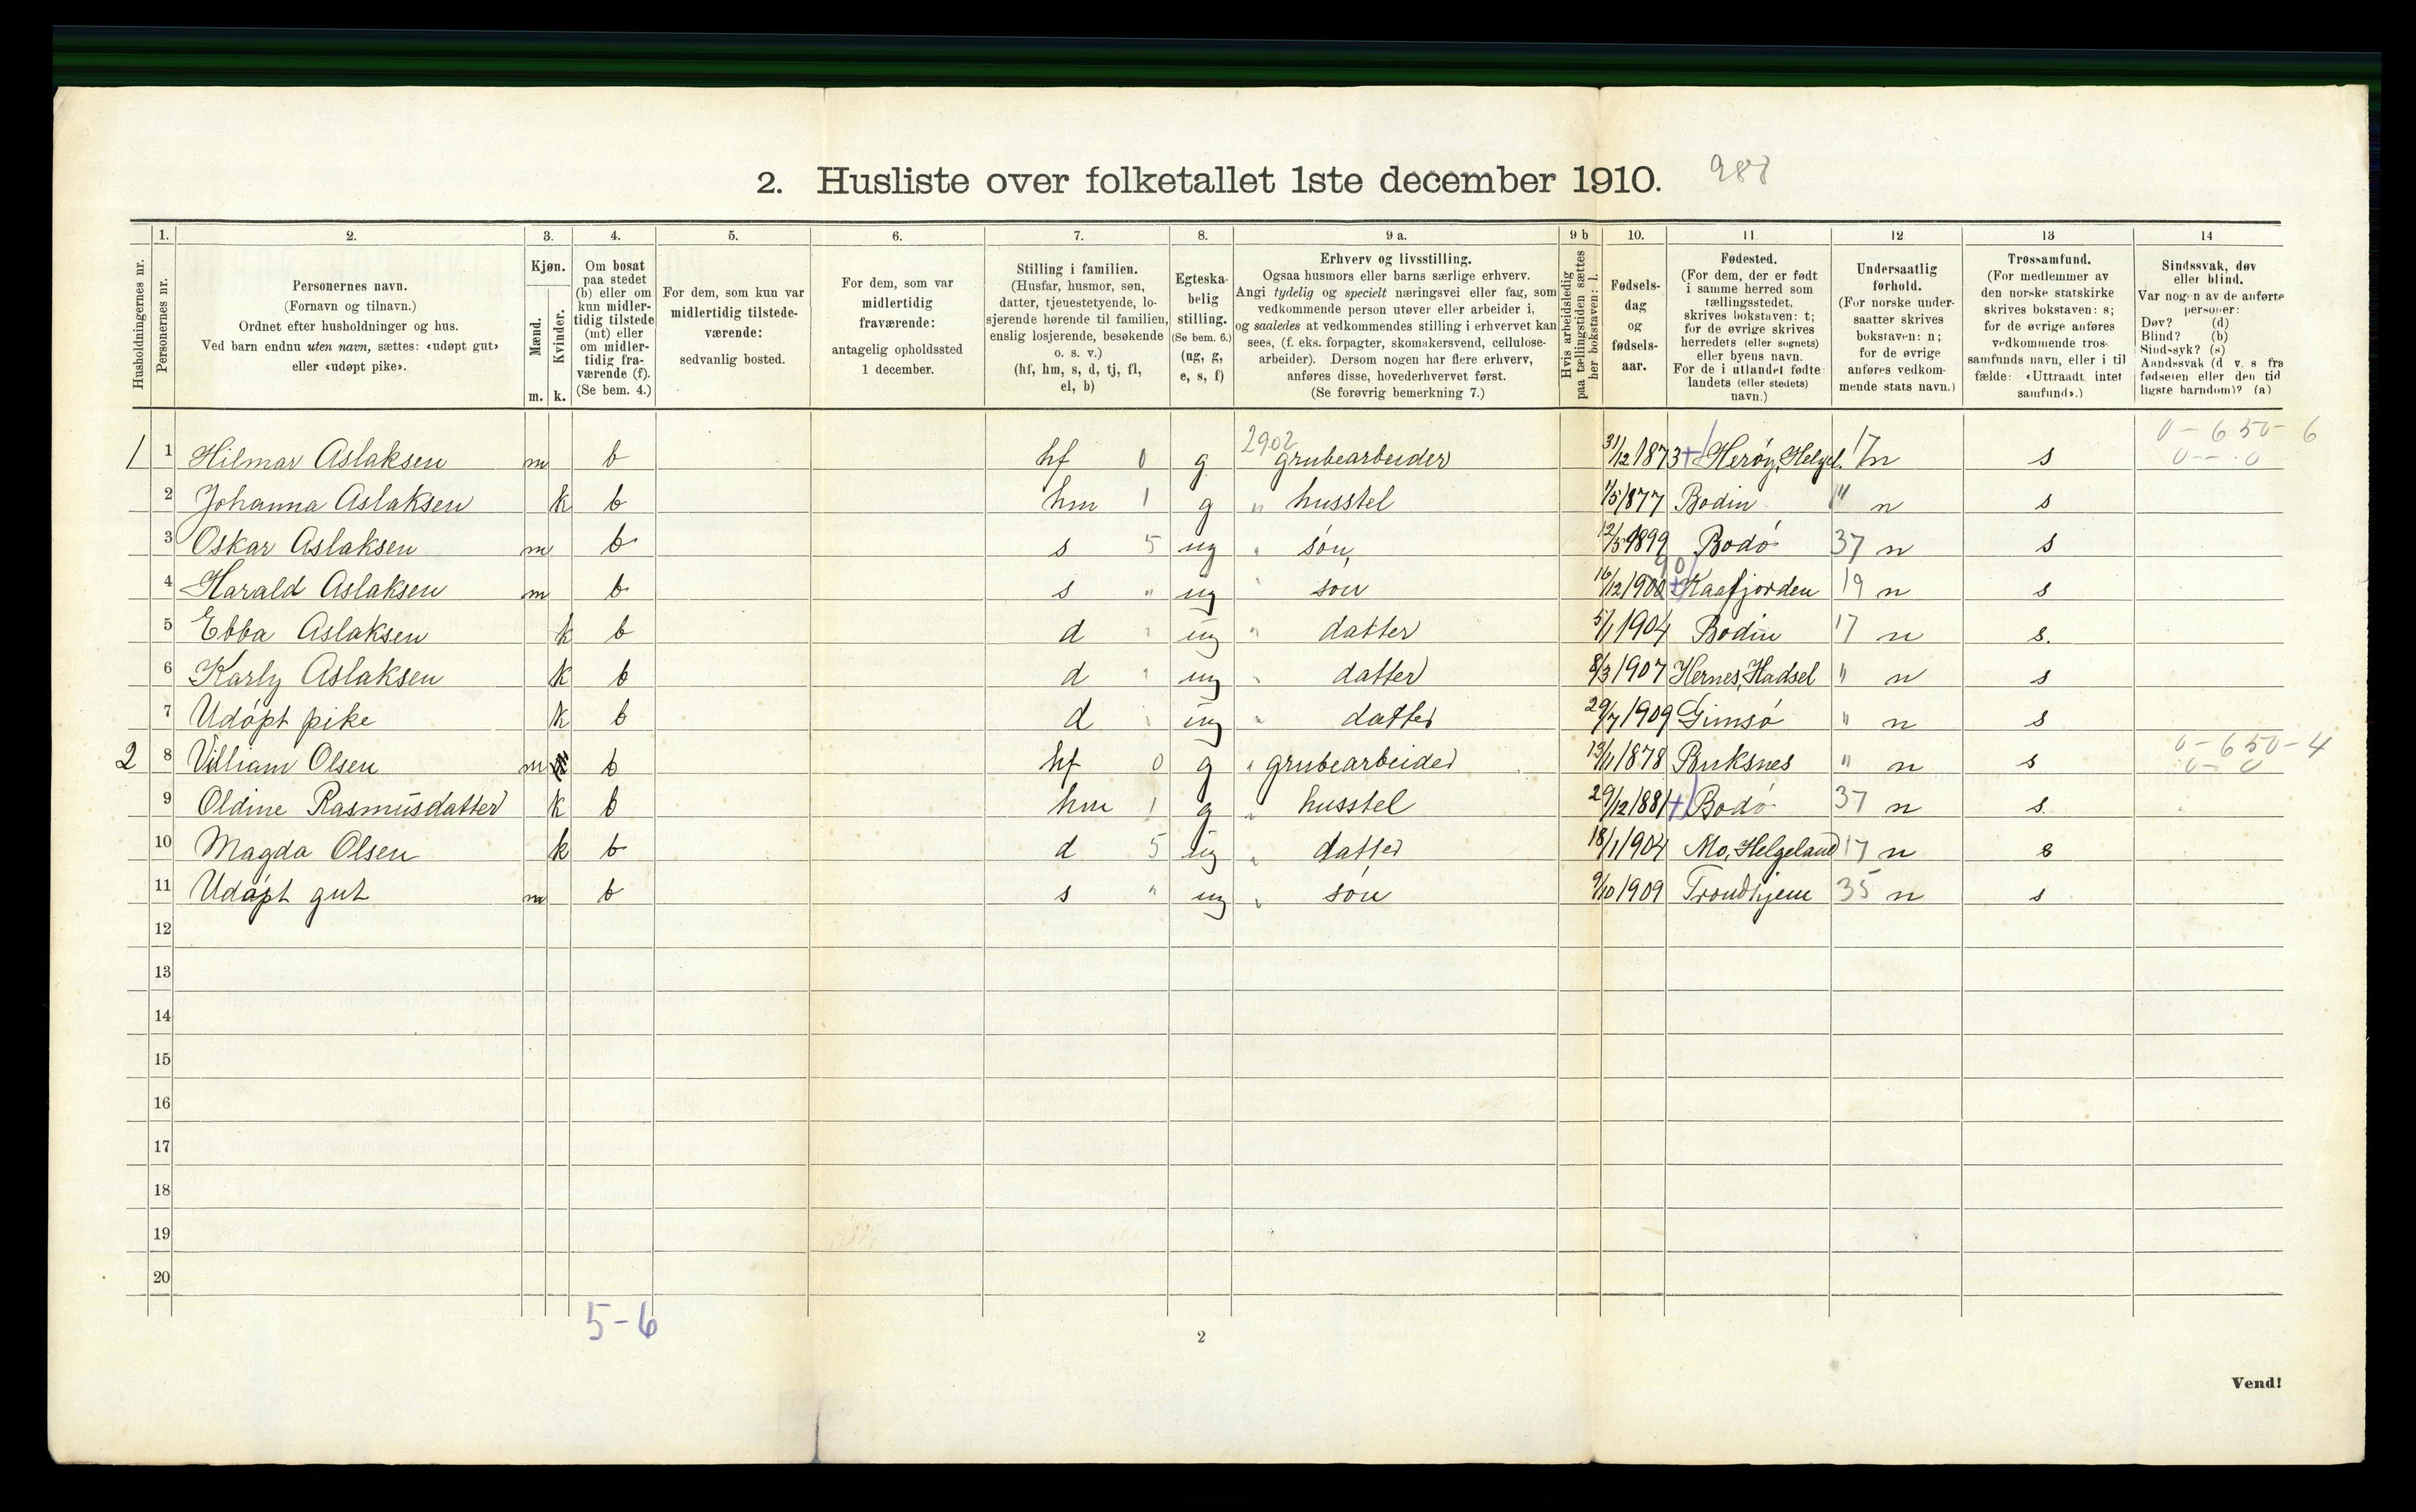 2. Husliste over folketallet 1ste december 1910. 988
1. 2. 3. 4. 5. 6. 7. 8. 9 a. 9 b 10. 11 12 13 14
Husholdningernes nr.
Personernes nr.
Personernes navn.
(Fornavn og tilnavn.)
Ordnet efter husholdninger og hus.
Ved barn endnu uten navn, sættes: «udøpt gut»
eller «udøpt pike».
Kjøn.
Mænd.
Kvinder.
m. k.
Om bosat
paa stedet
(b) eller om
kun midler-
tidig tilstede
(mt) eller
om midler-
tidig fra-
værende (f).
(Se bem. 4.)
For dem, som kun var
midlertidig tilstede-
værende:
sedvanlig bosted.
For dem, som var
midlertidig
fraværende:
antagelig opholdssted
1 december.
Stilling i familien.
(Husfar, husmor, søn,
datter, tjenestetyende, lo-
sjerende hørende til familien,
enslig losjerende, besøkende
o. s. v.)
(hf, hm, s, d, tj, fl,
el, b)
Egteska-
belig
stilling.
(Se bem. 6.)
(ug, g,
e, s, f)
Erhverv og livsstilling.
Ogsaa husmors eller barns særlige erhverv.
Angi tydelig og specielt næringsvei eller fag, som
vedkommende person utøver eller arbeider i,
og saaledes at vedkommendes stilling i erhvervet kan
sees, (f. eks. forpagter, skomakersvend, cellulose-
arbeider). Dersom nogen har flere erhverv,
anføres disse, hovederhvervet først.
(Se forøvrig bemerkning 7.)
Hvis arbeidsledig
paa tællingstiden sættes
her bokstaven: l.
Fødsels-
dag
og
fødsels-
aar.
Fødested.
(For dem, der er født
i samme herred som
tællingsstedet,
skrives bokstaven: t;
for de øvrige skrives
herredets (eller sognets)
eller byens navn.
For de i utlandet fødte:
landets (eller stedets)
navn.)
Undersaatlig
forhold.
(For norske under-
saatter skrives
bokstaven: n;
for de øvrige
anføres vedkom-
mende stats navn.)
Trossamfund.
(For medlemmer av
den norske statskirke
skrives bokstaven: s;
for de øvrige anføres
vedkommende tros-
samfunds navn, eller i til
fælde: «Uttraadt intet
samfund».)
Sindssvak, døv
eller blind.
Var nogen av de anførte
personer:
Døv? (d)
Blind? (b)
Sindssyk? (s)
Aandssvak (d v. s fra
fødselen eller den tid
ligste barndom)? (a)
1 1 Hilmar Aslaksen m b hf 0 g 2902 grubearbeider 31/12 1873 + Herøy, Helgel. 17 n s 0 - 650 - 6 0 - 0
2 Johanna Aslaksen k b hm 1 g " husstel 7/5 1877 Bodin " n s
3 Oskar Aslaksen m b s 5 ug " søn, 12/5 1899 Bodø 37 n s
4 Harald Aslaksen m b s " ug " søn 16/12 1900 90 + Kaafjorden 19 n s
5 Ebba Aslaksen k b d " ug " datter 5/1 1904 Bodin 17 n s.
6 Karly Aslaksen k b d " ug " datter 8/3 1907 Hernes, Hadsel " n s
7 Udøpt pike k b d " ug " datter 29/7 1909 Gimsø " n s
2 8 Villiam Olsen m b hf 0 g " grubearbeider 13/11 1878 Buksnes " n s 0 - 650 - 4 0 - 0
9 Oldine Rasmusdatter k b hm 1 g " husstel 29/12 1881 + Bodø 37 n s.
10 Magda Olsen k b d 5 ug " datter 18/1 1904 Mo, Helgeland 17 n s
11 Udøpt gut m b s " ug " søn 9/10 1909 Trondhjem 35 n s
12
13
14
15
16
17
18
19
20
5-6
2
Vend!